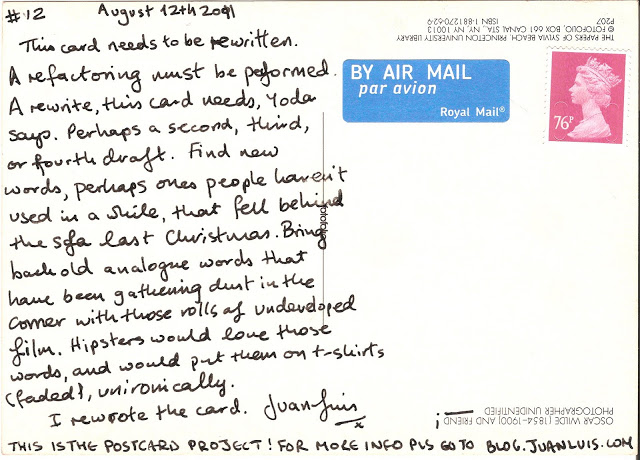 #12 August 12th 2011
This card needs to be rewritten.
A refactoring must be performed.
A rewrite, this card needs, Yoda
says. Perhaps a second, third,
or fourth draft. Find new
words, perhaps ones people haven't
used in a while, that fell behind
the sofa last Christmas. Bring
back old analogue words that
have been gathering dust in the
corner with those rolls of undeveloped
film. Hipsters would love those
words, and would put them on t-shirts
(faded), unironically.
I rewrote the card. Juan Luis x
THIS IS THE POSTCARD PROJECT! FOR MORE INFO PLS GO TO BLOG.JUANLUIS.COM
BY AIR MAIL
par avion
Royal Mail®
76P
THE PAPERS OF SYLVIA BEACH, PRINCETON UNIVERSITY LIBRARY
© FOTOFOLIO, BOX 661 CANAL STA., NY, NY 10013
ISBN 1-881270-62-9
P207
OSCAR WILDE (1854-1900) AND FRIEND
PHOTOGRAPHER UNIDENTIFIED